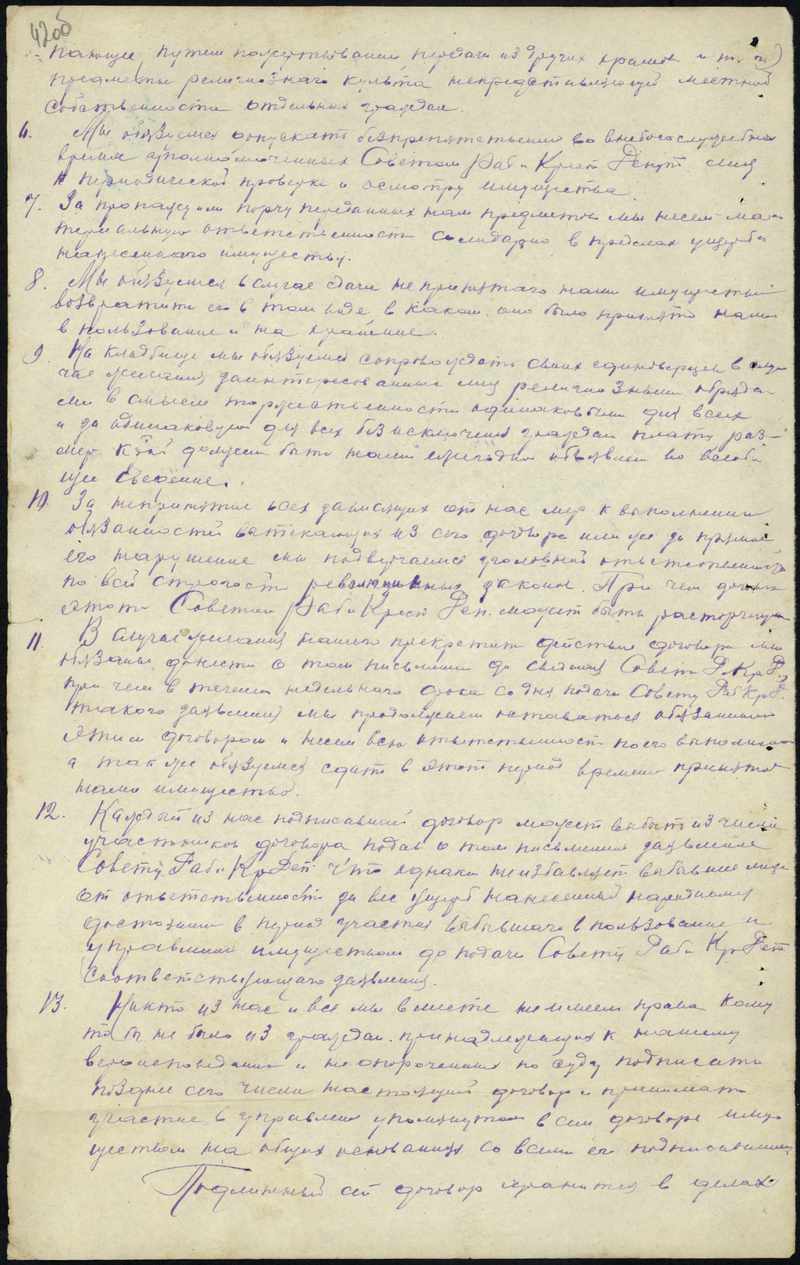 42об
пающие, путем пожертвований, передачи из других храмов и т. п.)
предметы религиознаго культа непредставляющей местной
собственности отдельных граждан.
6. Мы обязуемся допускать безпрепятственно во внебогослужебное
время уполномоченных Советом Раб. и Крест. Депут. лиц
к периодической проверке и осмотру имущества.
7. За пропажу или порчу переданных нам предметов мы несем ма-
териальную ответственность солидарно в пределах ущерба
нанесеннаго имуществу.
8. Мы обязуемся в случае сдачи не принятаго нами имущества
возвратить его в том виде в каком оно было принято нами
в пользование и на хранение.
9. На кладбище мы обязуемся сопровождать своих единоверцев в слу-
чае желания заинтересованных лиц религиозными обряда-
ми в смысле торжественности одинаковыми для всех
и за одинаковую для всех без исключения граждан плату раз-
мер к-ой должен быть нами ежегодно объявлен во всеоб-
щее сведение.
10. За непринятие всех зависящих от нас мер к выполнению
обязанностей вытекающих из сего договора или же за прямое
его нарушение мы подвергаемся уголовной ответственности
по всей строгости революционных законов. При чем договор
этот Советом Раб. и Крест. Деп. может быть расторгнут.
11. В случае желания нашего прекратить действие договора мы
обязаны донести о том письменно до сведения Совет Р. Кр. Д.,
при чем в течении недельнаго срока со дня подачи Совету Раб Кр. Д.
такого заявления мы продолжаем оставаться обязанными
этим договором и несем всю ответственность по его выполнению
а так же обязуемся сдать в этот период времени принятое
нами имущество.
12. Каждый из нас подписавший договор может выбыть из числа
участников договора подав о том письменное заявление
Совету Раб. и Кр. Деп. что однако не избавляет выбывшее лицо
от ответственности за весь ущерб нанесенный народному
достоянию в период участия выбывшаго в пользование и
управлении имуществом до подачи Совету Раб. и Кр. Деп
соответствующаго заявления.
13. Никто из нас и все мы вместе не имеем права кому
то бы не было из граждан принадлежащих к нашему
вероисповеданию и не опороченных по суду подписать
позднее сего числа настоящий договор и принимать
участие в управлении упомянутом в сем договоре иму-
ществом на общих основаниях со всеми его подписавшими
Подлинный сей договор хранится в делах